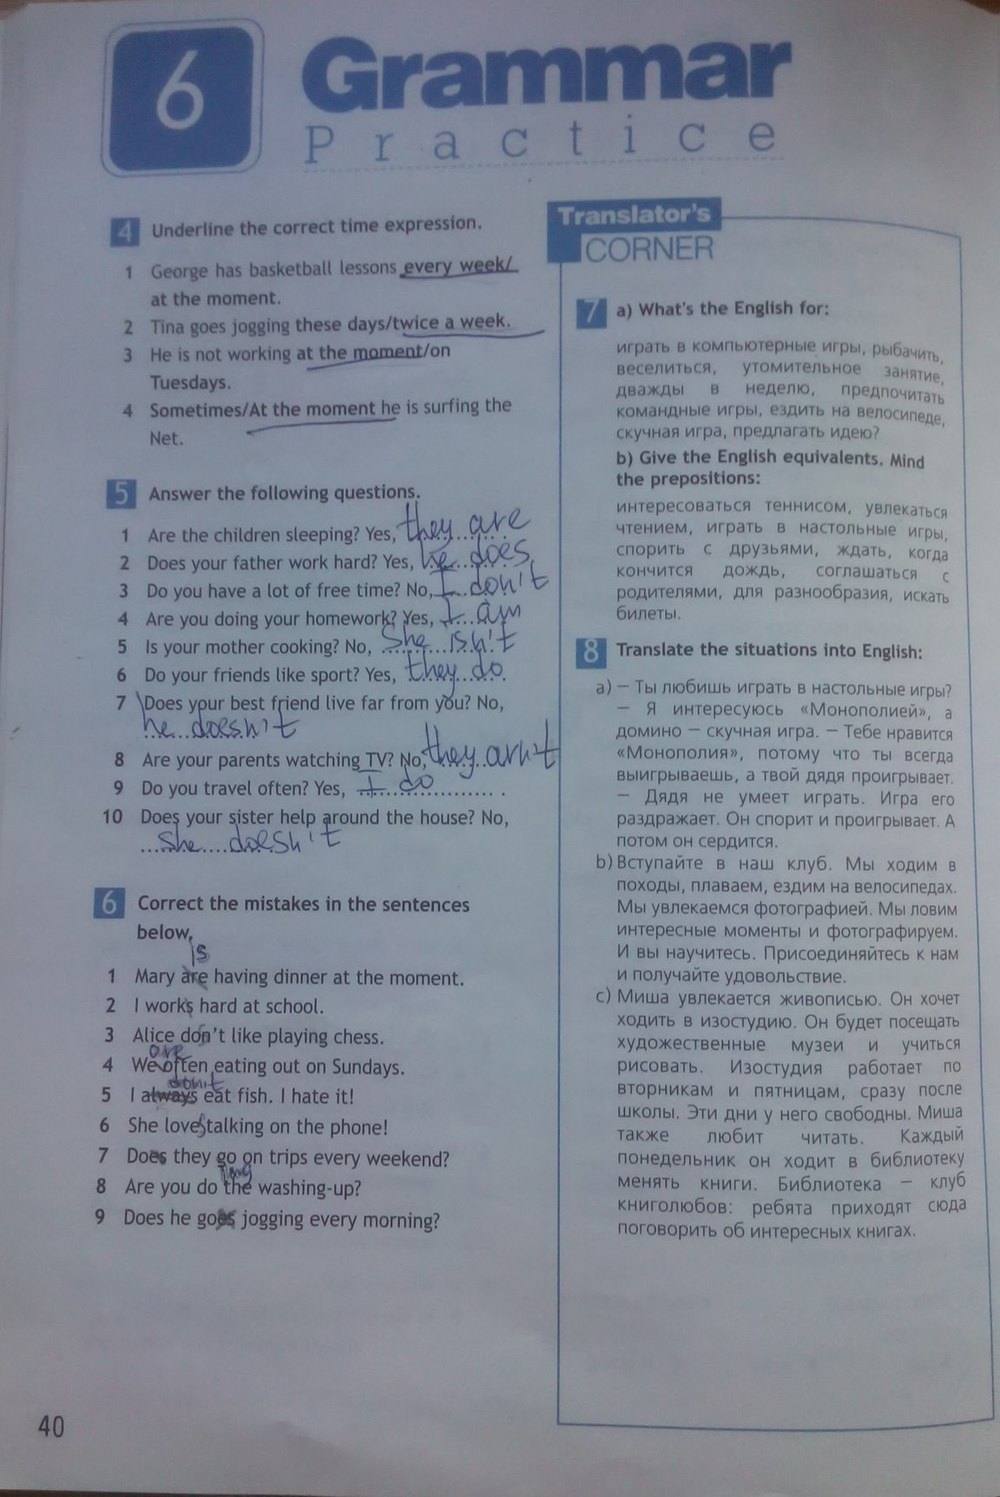 6
Grammar
Practice
4 Underline the correct time expression.
1 George has basketball lessons every week/
at the moment.
2 Tina goes jogging these days/twice a week.
3 He is not working at the moment/on
Tuesdays.
4 Sometimes/At the moment he is surfing the
Net.
5 Answer the following questions.
1 Are the children sleeping? Yes, they are
2 Does your father work hard? Yes, he does
3 Do you have a lot of free time? No, I don't
4 Are you doing your homework? Yes, I am
5 Is your mother cooking? No, she isn't
6 Do your friends like sport? Yes, they do
7 Does your best friend live far from you? No,
he doesn't
8 Are your parents watching TV? No, they arn't
9 Do you travel often? Yes, I do
10 Does your sister help around the house? No,
she doesn't
6 Correct the mistakes in the sentences
below.
is
1 Mary are having dinner at the moment.
2 I works hard at school.
3 Alice don't like playing chess.
are
4 We often eating out on Sundays.
don't
5 I always eat fish. I hate it!
6 She loves talking on the phone!
7 Does they go on trips every weekend?
ing
8 Are you do the washing-up?
9 Does he goes jogging every morning?
40
Translator's
CORNER
7 a) What's the English for:
играть в компьютерные игры, рыбачить,
веселиться, утомительное занятие,
дважды в неделю, предпочитать
командные игры, ездить на велосипеде,
скучная игра, предлагать идею?
b) Give the English equivalents. Mind
the prepositions:
интересоваться теннисом, увлекаться
чтением, играть в настольные игры,
спорить с друзьями, ждать, когда
кончится дождь, соглашаться с
родителями, для разнообразия, искать
билеты.
8 Translate the situations into English:
a) – Ты любишь играть в настольные игры?
– Я интересуюсь «Монополией», а
домино – скучная игра. – Тебе нравится
«Монополия», потому что ты всегда
выигрываешь, а твой дядя проигрывает.
– Дядя не умеет играть. Игра его
раздражает. Он спорит и проигрывает. А
потом он сердится.
b) Вступайте в наш клуб. Мы ходим в
походы, плаваем, ездим на велосипедах.
Мы увлекаемся фотографией. Мы ловим
интересные моменты и фотографируем.
И вы научитесь. Присоединяйтесь к нам
и получайте удовольствие.
c) Миша увлекается живописью. Он хочет
ходить в изостудию. Он будет посещать
художественные музеи и учиться
рисовать. Изостудия работает по
вторникам и пятницам, сразу после
школы. Эти дни у него свободны. Миша
также любит читать. Каждый
понедельник он ходит в библиотеку
менять книги. Библиотека – клуб
книголюбов: ребята приходят сюда
поговорить об интересных книгах.